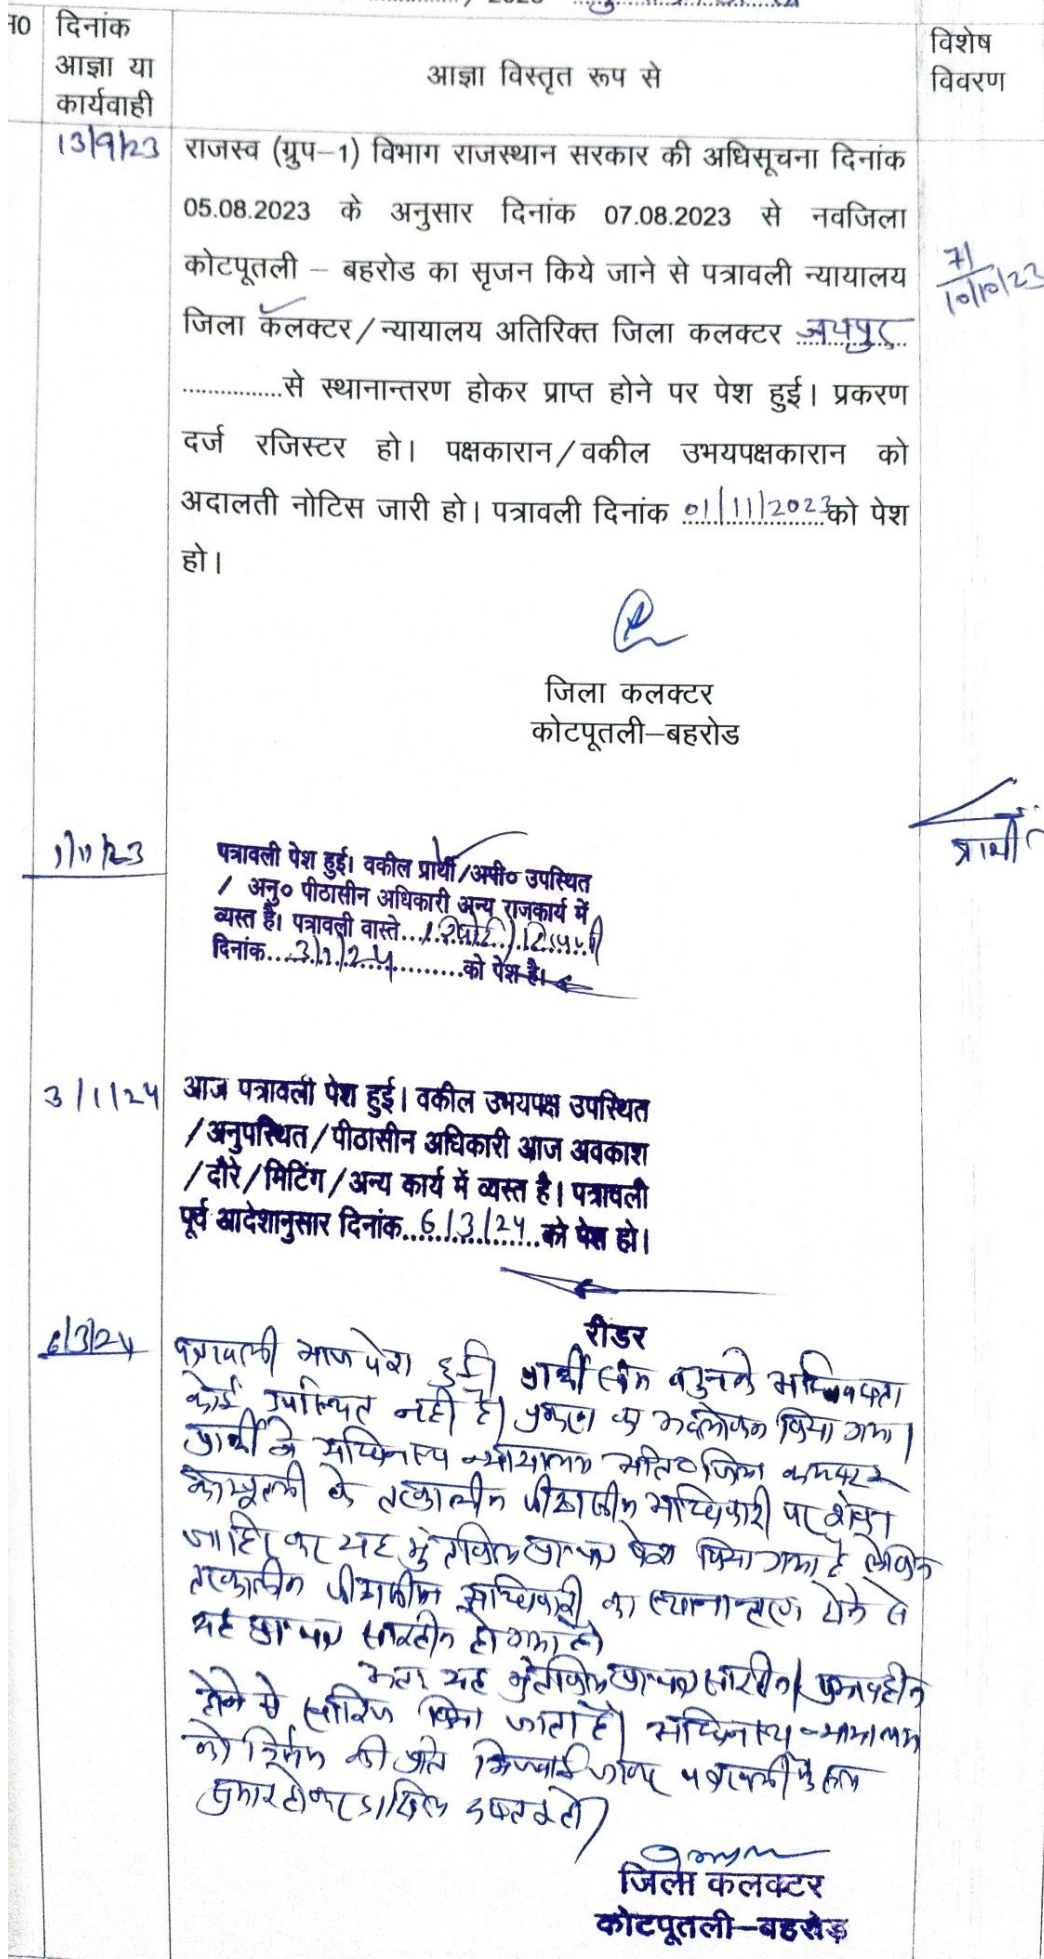 / 2023
न0
दिनांक
आज्ञा या
कार्यवाही
आज्ञा विस्तृत रूप से
विशेष
विवरण
13/9/23
राजस्व (ग्रुप–1) विभाग राजस्थान सरकार की अधिसूचना दिनांक
05.08.2023 के अनुसार दिनांक 07.08.2023 से नवजिला
कोटपूतली – बहरोड का सृजन किये जाने से पत्रावली न्यायालय
जिला कलक्टर/न्यायालय अतिरिक्त जिला कलक्टर जयपुर
................से स्थानान्तरण होकर प्राप्त होने पर पेश हुई। प्रकरण
दर्ज रजिस्टर हो। पक्षकारान/वकील उभयपक्षकारान को
अदालती नोटिस जारी हो। पत्रावली दिनांक 01/11/2023 को पेश
हो।
71
10/10/23
जिला कलक्टर
कोटपूतली–बहरोड
1/11/23
प्रार्थी
पत्रावली पेश हुई। वकील प्रार्थी/अपी० उपस्थित
/ अनु० पीठासीन अधिकारी अन्य राजकार्य में
व्यस्त है। पत्रावली वास्ते
दिनांक....3/1/24............को पेश है।
3/1/24
आज पत्रावली पेश हुई। वकील उभयपक्ष उपस्थित
/अनुपस्थित/पीठासीन अधिकारी आज अवकाश
/दौरे/मिटिंग/अन्य कार्य में व्यस्त है। पत्रावली
पूर्व आदेशानुसार दिनांक...6/3/24...को पेश हो।
रीडर
6/3/24
पत्रावली आज पेश हुई। प्रार्थी अधिवक्ता
कोई उपस्थित नही है। प्रकरण का अवलोकन किया गया।
प्रार्थी ने अधिनस्थ न्यायालय अति० जिला कलक्टर
कोटपूतली के तत्कालीन पीठासीन अधिकारी पर
कर यह पेश किया गया है लेकिन
तत्कालीन पीठासीन अधिकारी का स्थानान्तरण होने से
यह प्रा० पत्र सारहीन हो गया है।
अतः यह प्रा० पत्र सारहीन/प्रभावहीन
होने से खारिज किया जाता है। अधिनस्थ न्यायालय
को निर्णय की प्रति भिजवाई जावे। पत्रावली
शुमार होकर दाखिल दफ्तर हो।
जिला कलक्टर
कोटपूतली–बहरोड़